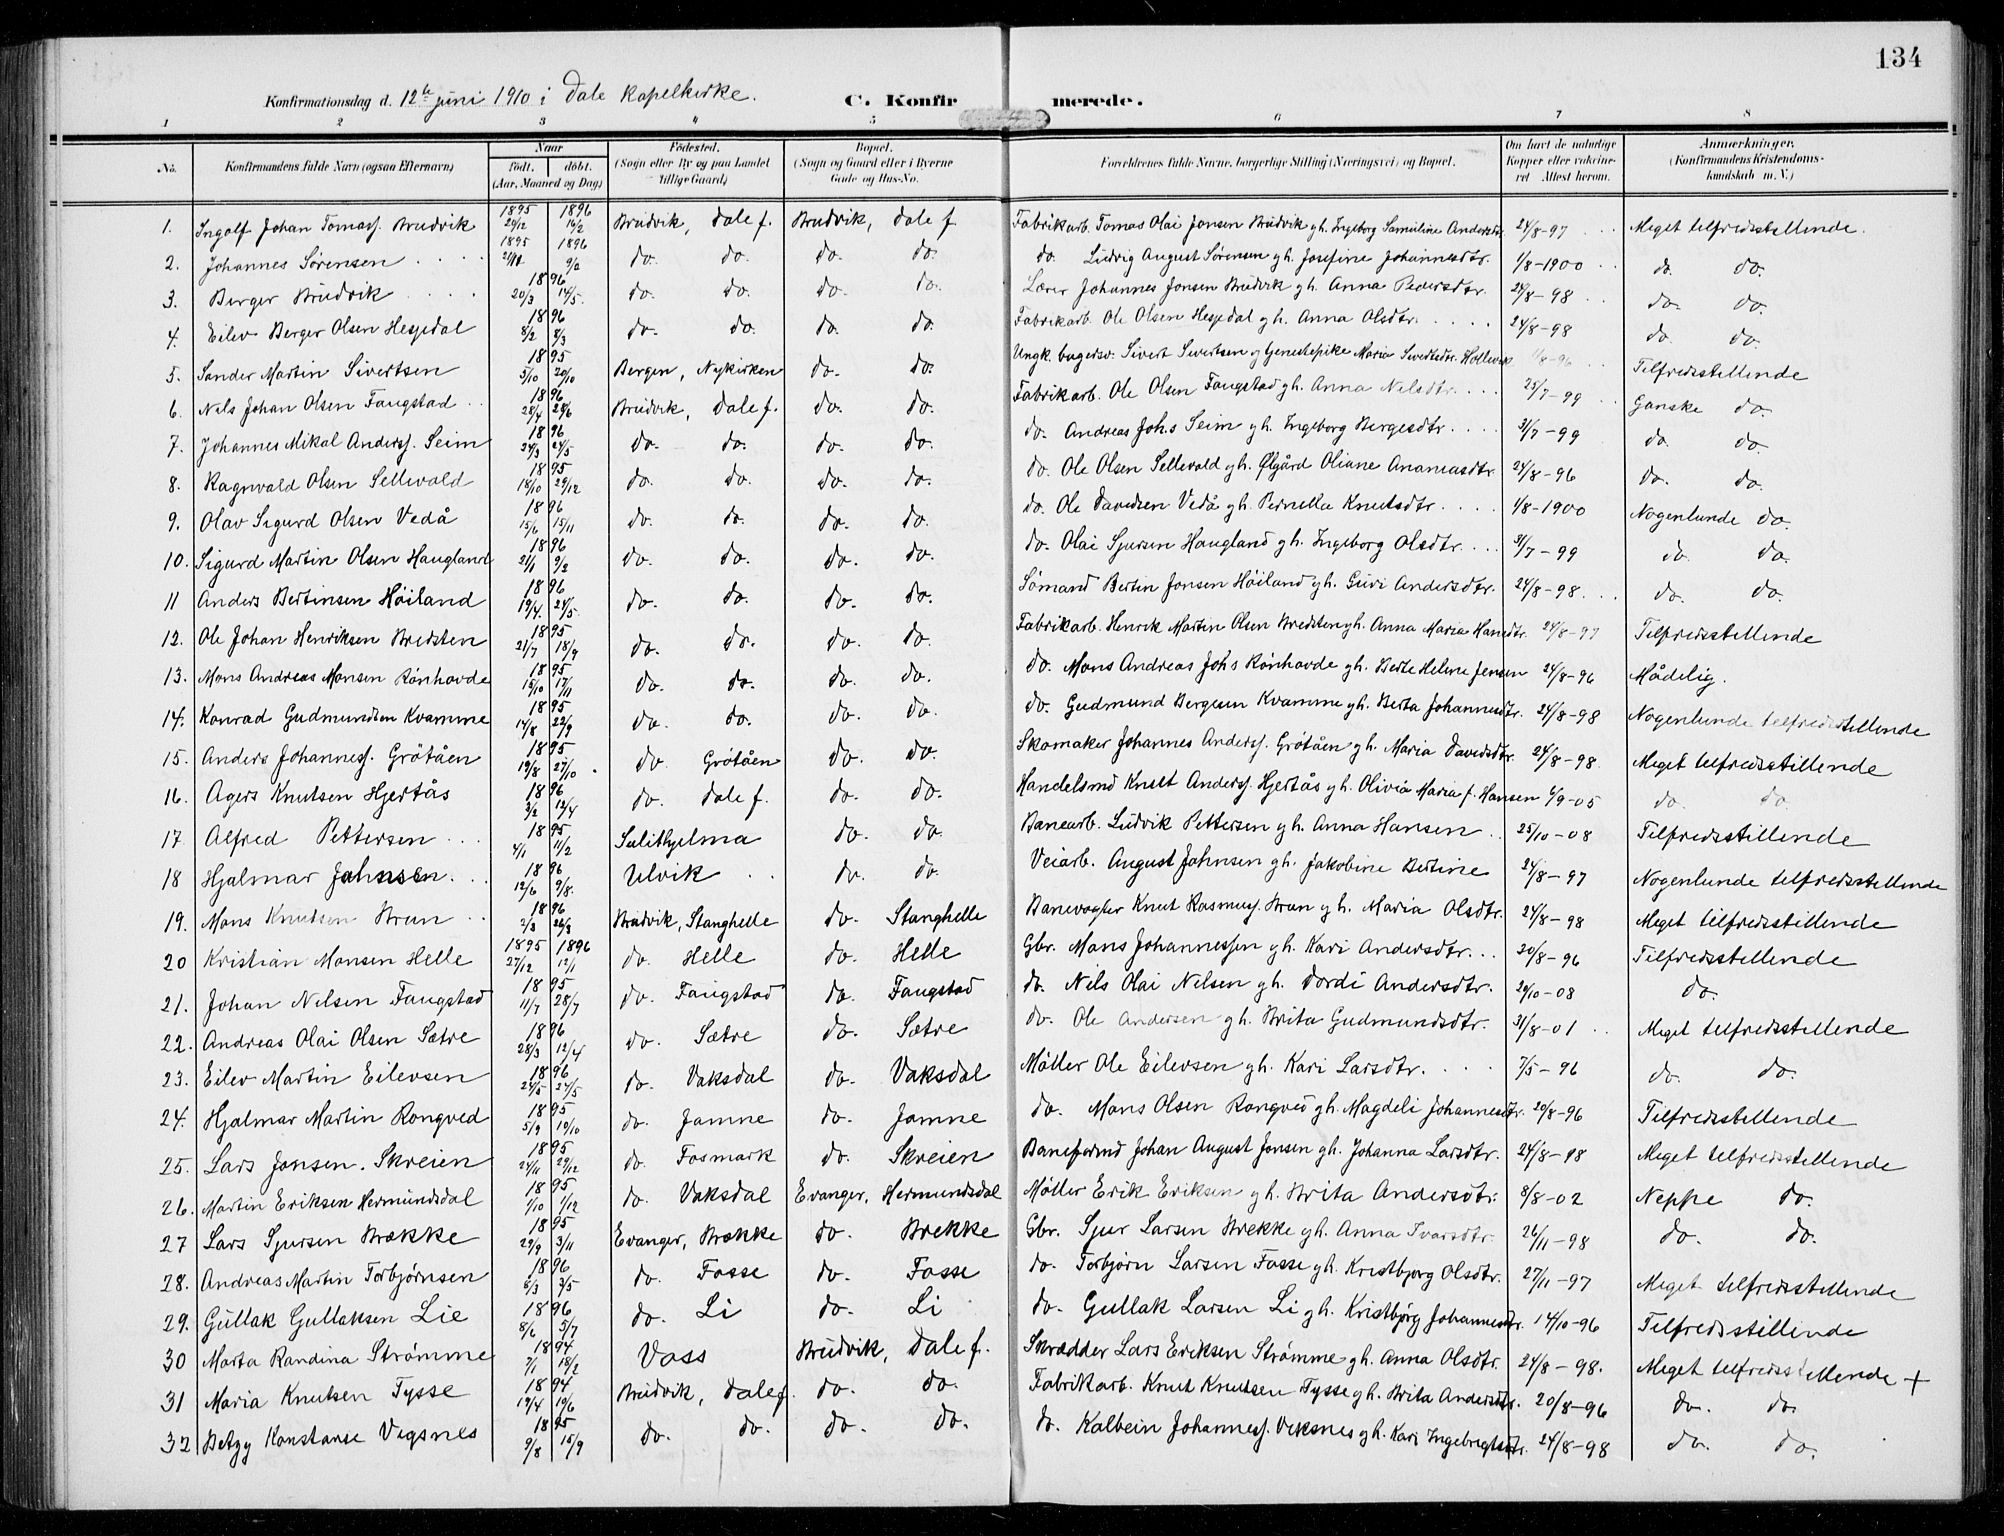 134
Konfirmationsdag d. 12te juni 1910 i Dale Kapelkirke. C. Konfirmerede.
1 2 3 4 5 6 7 8
No. Konfirmandens fulde Navn (ogsaa Efternavn) Naar født. døbt. (Aar, Maaned og Dag) Fødested. (Sogn eller By og paa Landet tillige Gaard) Bopæl. (Sogn og Gaard eller i Byerne Gade og Hus-No. Forældrenes fulde Navne, borgerlige Stilling (Næringsvei) og Bopæl. Om havt de naturlige Kopper eller vaccineret Attest herom. Anmærkninger. (Konfirmandens Kristendomskundskab m. V.)
1. Ingolf Johan Tomass. Brudvik 1895 24/12 1896 16/2 Brudvik, Dale f. Brudvik, Dale f Fabrikarb. Tomas Olai Jonsen Brudvik gh. Ingeborg Samuline Andersdtr. 24/8-97 Meget tilfredsstillende.
2. Johannes Sørensen 1895 1896 9/2 do. do. do. do. do. Ludvig August Sørensen gh. Josefine Johannesdtr. 1/8-1900 do. do.
3. Berger Brudvik 1896 20/3 14/5 do. do. do. do. Lærer Johannes Jonsen Brudvik gh. Anna Pedersdtr. 24/8-98 do. do.
4. Eilev Berger Olsen Hesjedal 1896 8/2 8/3 do. do. do. do. Fabrikarb. Ole Olsen Hesjedal gh. Anna Olsdtr. 24/8-98 do. do.
5. Sander Martin Sivertsen 1895 5/10 20/10 Bergen, Nykirken do. do. Ungk. bagersv. Sivert Sivertsen og Tjenestepike Maria Sivertsdtr. Tilfredsstillende
6. Nels Johan Olsen Faugstad 1896 28/4 24/6 Brudvik, Dale f. do. do. Fabrikarb. Ole Olsen Faugstad gh. Anna Nelsdtr. 25/7-99 Ganske do.
7. Johannes Mikal Anderss. Seim 1896 24/3 24/5 do. do. do. do. do. Andreas Johs Seim gh. Ingeborg Bergesdtr. 31/7-99 do. do.
8. Ragnvald Olsen Sellevold 1895 18/10 29/12 do. do. do. do. do. Ole Olsen Sellevold gh. Ølgård Oliane Ananiasdtr. 24/8-96 do. do.
9. Olav Sigurd Olsen Vedå 1896 15/6 15/11 do. do. do. do. do. Ole Davidsen Vedå gh. Pernella Knutsdtr. 1/8-1900 Nogenlunde do.
10. Sigurd Martin Olsen Haugland 1896 21/1 9/2 do. do. do. do. do. Olai Sjursen Haugland gh. Ingeborg Olsdtr. 31/7-99 do. do.
11 Anders Bertinsen Høiland 1896 19/4 24/5 do. do. do. do. Sømand Bertin Jonsen Høiland gh. Guri Andersdtr. 24/8-98 do. do.
12. Ole Johan Henriksen Bredsten 1895 21/7 18/9 do. do. do. do. Fabrikarb. Henrik Martin Olsen Bredsten gh. Anna Maria Hansdtr. 24/8-97 Tilfredsstillende
13. Mons Andreas Monsen Rønhovde 1895 15/10 17/11 do. do. do. do. do. Mons Andreas Johs Rønhovde gh. Berte Helene Jensen 24/8-96 Mådelig.
14. Konrad Gudmundsen Kvamme 1895 14/8 22/9 do. do. do. do. do. Gudmund Bergesen Kvamme gh. Berta Johannesdtr. 24/8-98 Nogenlunde tilfredsstillende
15. Anders Johanness. Grötåen 1895 19/8 27/10 do. Grötåen do. do. Skomaker Johannes Anderss. Grötåen gh. Maria Davidsdtr. 24/8-98. Meget tilfredsstillende
16. Agers Knutsen Hjertås 1896 3/2 12/4 do. Dale f. do. do. Handelsmd Knut Anderss. Hjertås gh. Olivia Maria f. Hansen 6/9-05 do. do.
17 Alfred Pettersen 1895 4/1 11/2 Sulithjelma do. do. Banearb. Ludvik Pettersen gh. Anna Hansen 25/10-08 Tilfredsstillende
18 Hjalmar Johnsen 1896 12/6 9/8. Ulvik do. do. Veiarb. August Johnsen gh. Jakobine Bertine 24/8-97 Nogenlunde tilfredsstillende
19. Mons Knutsen Brun 1896 2/3 26/3 Brudvik, Stanghelle do. Stanghelle Banevogter Knut Rasmuss. Brun gh. Maria Olsdtr. 24/8-98 Meget tilfredsstillende
20 Kristian Monsen Helle 1895 27/12 1896 12/1 do. Helle do. Helle Gbr. Mons Johannessen gh. Kari Andersdtr. 20/8-96 Tilfredsstillende
21. Johan Nelsen Faugstad 1895 11/7 28/7 do. Faugstad do. Faugstad do. Nils Olai Nelsen gh. Dordi Andersdtr. 24/10-08 do.
22. Andreas Olai Olsen Sætre 1896 28/3 12/4 do. Sætre do. Sætre do. Ole Andersen gh. Brita Gudmundsdtr. 31/8-01 Meget tilfredsstillende
23. Eilev Martin Eilevsen 1896 24/5 do. Vaksdal do. Vaksdal Møller Ole Eilevsen gh. Kari Larsdtr. 7/5-96 do. do.
24. Hjalmar Martin Rongved 1895 5/9 19/10 do. Jamne do. Jamne do. Mons Olsen Rongved gh. Magdeli Johannesdtr. 20/8-96 Tilfredsstillende
25. Lars Jonsen. Skreien 1895 24/11 29/12 do. Fosmark do. Skreien Baneformd Johan August Jonsen gh. Johanna Larsdtr. 24/8-98 Meget tilfredsstillende
26. Martin Eriksen Hermundsdal 1895 1/10 1/12 do. Vaksdal Evanger, Hermundsdal Møller Erik Eriksen gh. Brita Andersdtr. 8/8-02 Neppe do.
27 Lars Sjursen Brække 1895 29/9 3/11 Evanger, Brække do. Brekke Gbr. Sjur Larsen Brekke gh. Anna Ivarsdtr. 26/11-98 do. do.
28. Andreas Martin Torbjørnsen 1896 8/3 3/5 do. Fosse do. Fosse do. Torbjørn Larsen Fosse gh. Kristbjørg Olsdtr. 27/11-97 Meget tilfredsstillende
29. Gullak Gullaksen Lie 1896 8/6 5/7 do. Li do. Li do. Gullak Larsen Li gh. Kristbjørg Johannesdtr. 14/10-96 Tilfredsstillende
30 Marta Randina Strømme 1894 7/1 18/2 Voss Brudvik, Dale f. Skrædder Lars Eriksen Strømme gh. Anna Olsdtr. 24/8-98. Meget tilfredsstillende +
31 Maria Knutsen Tysse 1894 19/4 10/6 Brudvik, Dale f. do. do. Fabrikarb. Knut Knutsen Tysse gh. Brita Andersdtr. 20/8-96 do. do.
32 Betzy Konstanse Vegsnes 1895 9/8 15/9 do. do. do. do. do. Kolbein Johanness. Veksnes gh. Kari Ingebregtsdtr. 24/8-98 do. do.